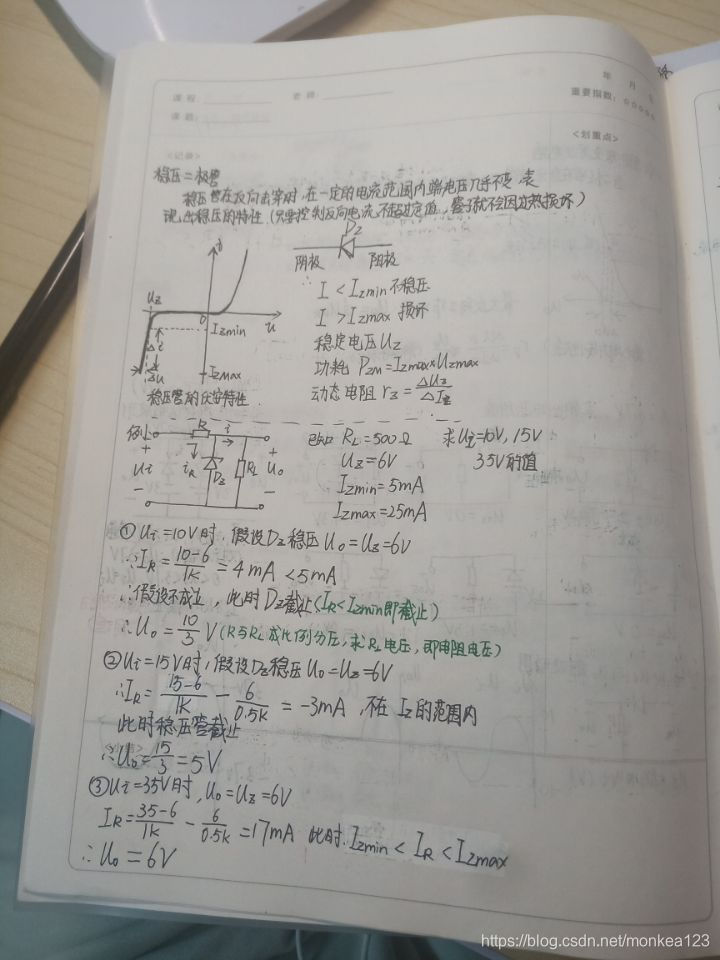 年 月 日
课程：
老师：
重要指数：☆☆☆☆☆
课题：
<记录>
<划重点>
稳压二极管
稳压管在反向击穿时，在一定的电流范围内端电压几乎不变，表
现出稳压的特性（只要控制反向电流不超过定值，管子就不会因过热损坏）
Dz
阴极 阳极
i
Uz
0
u
Izmin
Δi
Izmax
Δu
稳压管的伏安特性
∴ I < Izmin 不稳压
I > Izmax 损坏
稳定电压Uz
功耗 Pzm = Izmax×Uzmax
动态电阻 rz = ΔUz/ΔIz
例1
R i
+ Ui − iR Dz RL + Uo −
已知 RL = 500Ω 求Ui=10V, 15V
Uz = 6V 35V的值
Izmin = 5mA
Izmax = 25mA
① Ui = 10V时，假设Dz稳压 Uo = Uz = 6V
∴ IR = (10-6)/1K = 4mA < 5mA
∴ 假设不成立，此时Dz截止（IR < Izmin即截止）
∴ Uo = 10/3 V（R与RL成比例分压，求RL电压，即电阻电压）
② Ui = 15V时，假设Dz稳压 Uo = Uz = 6V
∴ IR = (15-6)/1K − 6/0.5K = -3mA，不在 Iz的范围内
此时稳压管截止
∴ Uo = 15/3 = 5V
③ Ui = 35V时，Uo = Uz = 6V
IR = (35-6)/1K − 6/0.5K = 17mA 此时 Izmin < IR < Izmax
∴ Uo = 6V
https://blog.csdn.net/monkea123